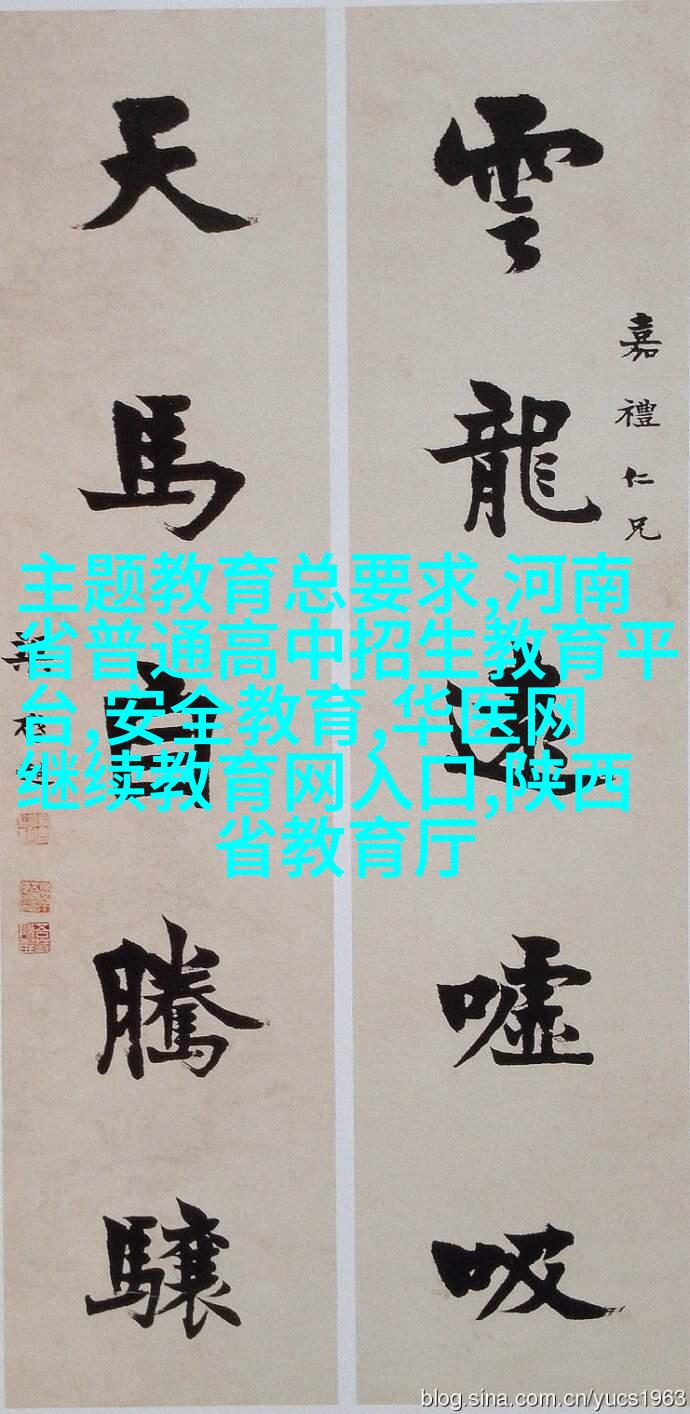 雲龍遠噓吸
嘉禮仁兄
天馬自騰驤
主题教育总要求,河南
省普通高中招生教育平
台,安全教育,华医网
继续教育网入口,陕西
省教育厅
blog.sina.com.cn/yucs1963